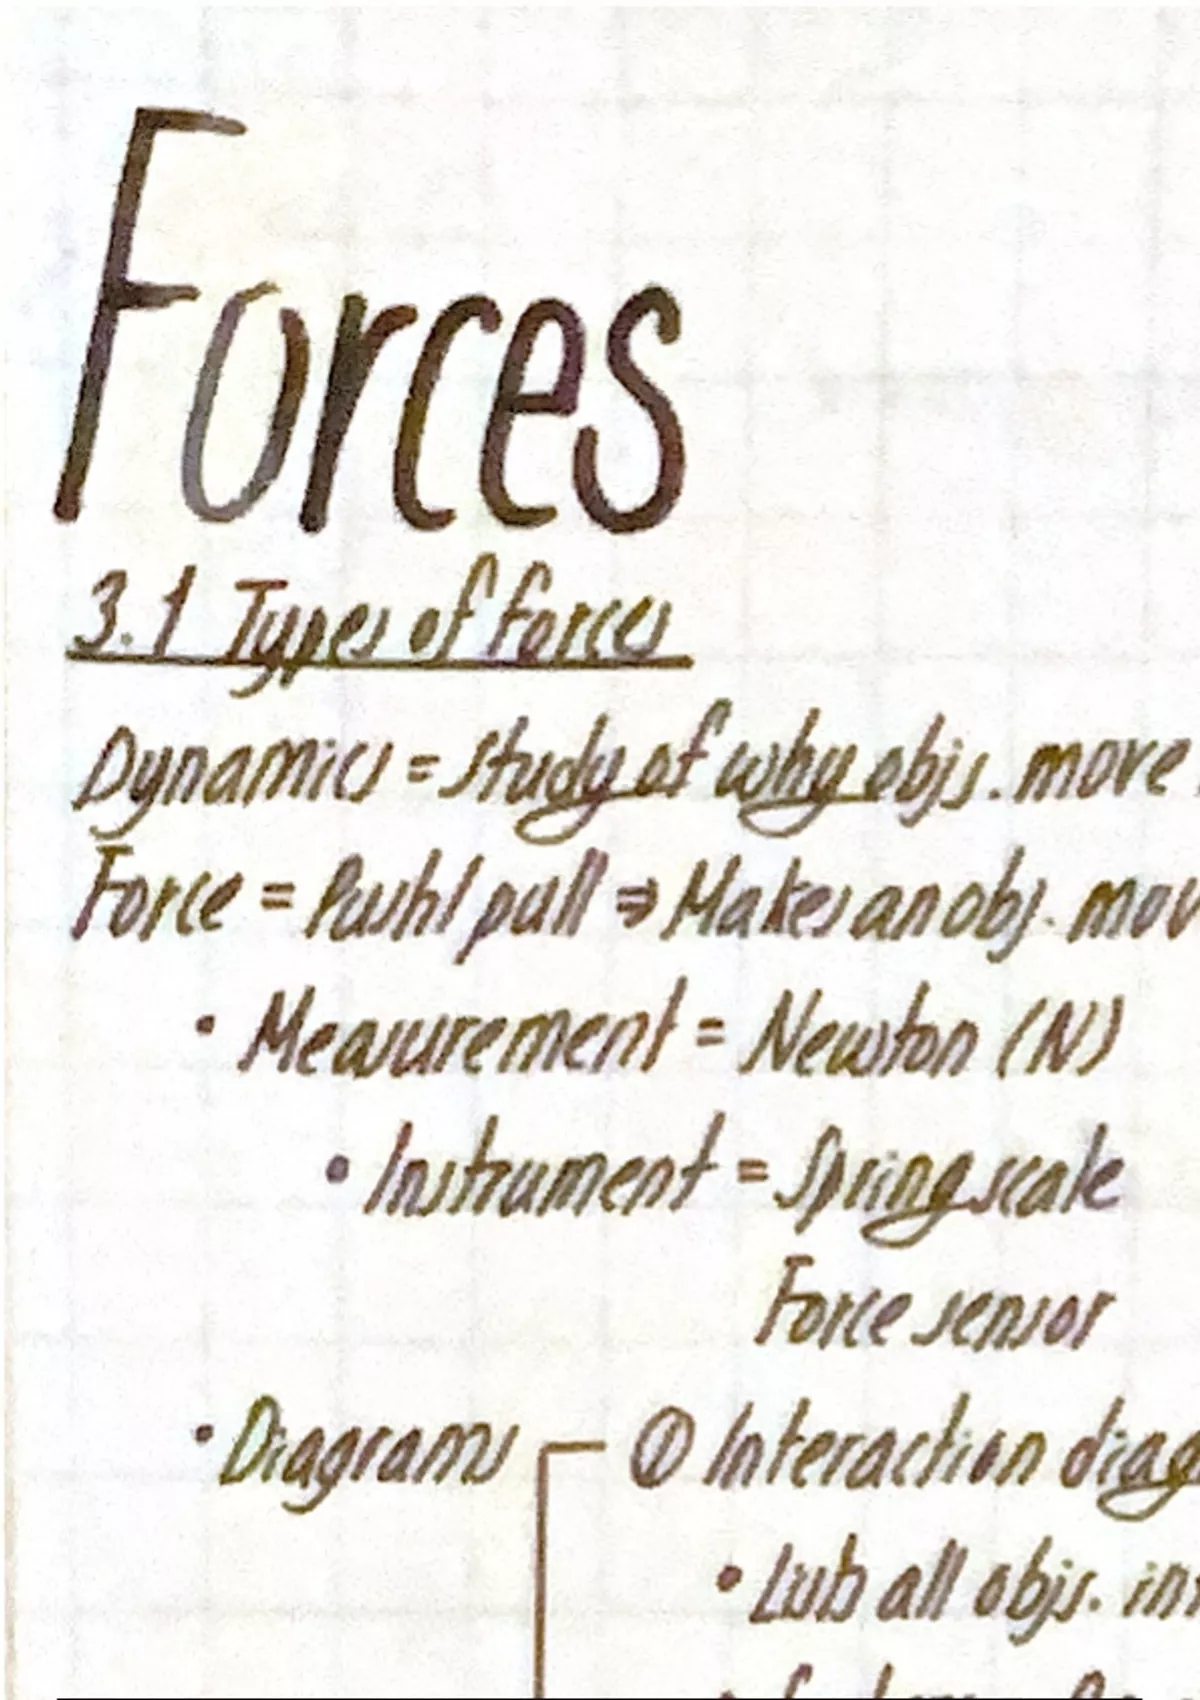 Forces
3.1 Types of forces
Dynamics = study of why objs. move
Force = Push/pull ⇒ Makes an obj. mov
• Measurement = Newton (N)
• Instrument = Spring scale
Force sensor
• Diagrams ① Interaction diag
• Lists all objs. in